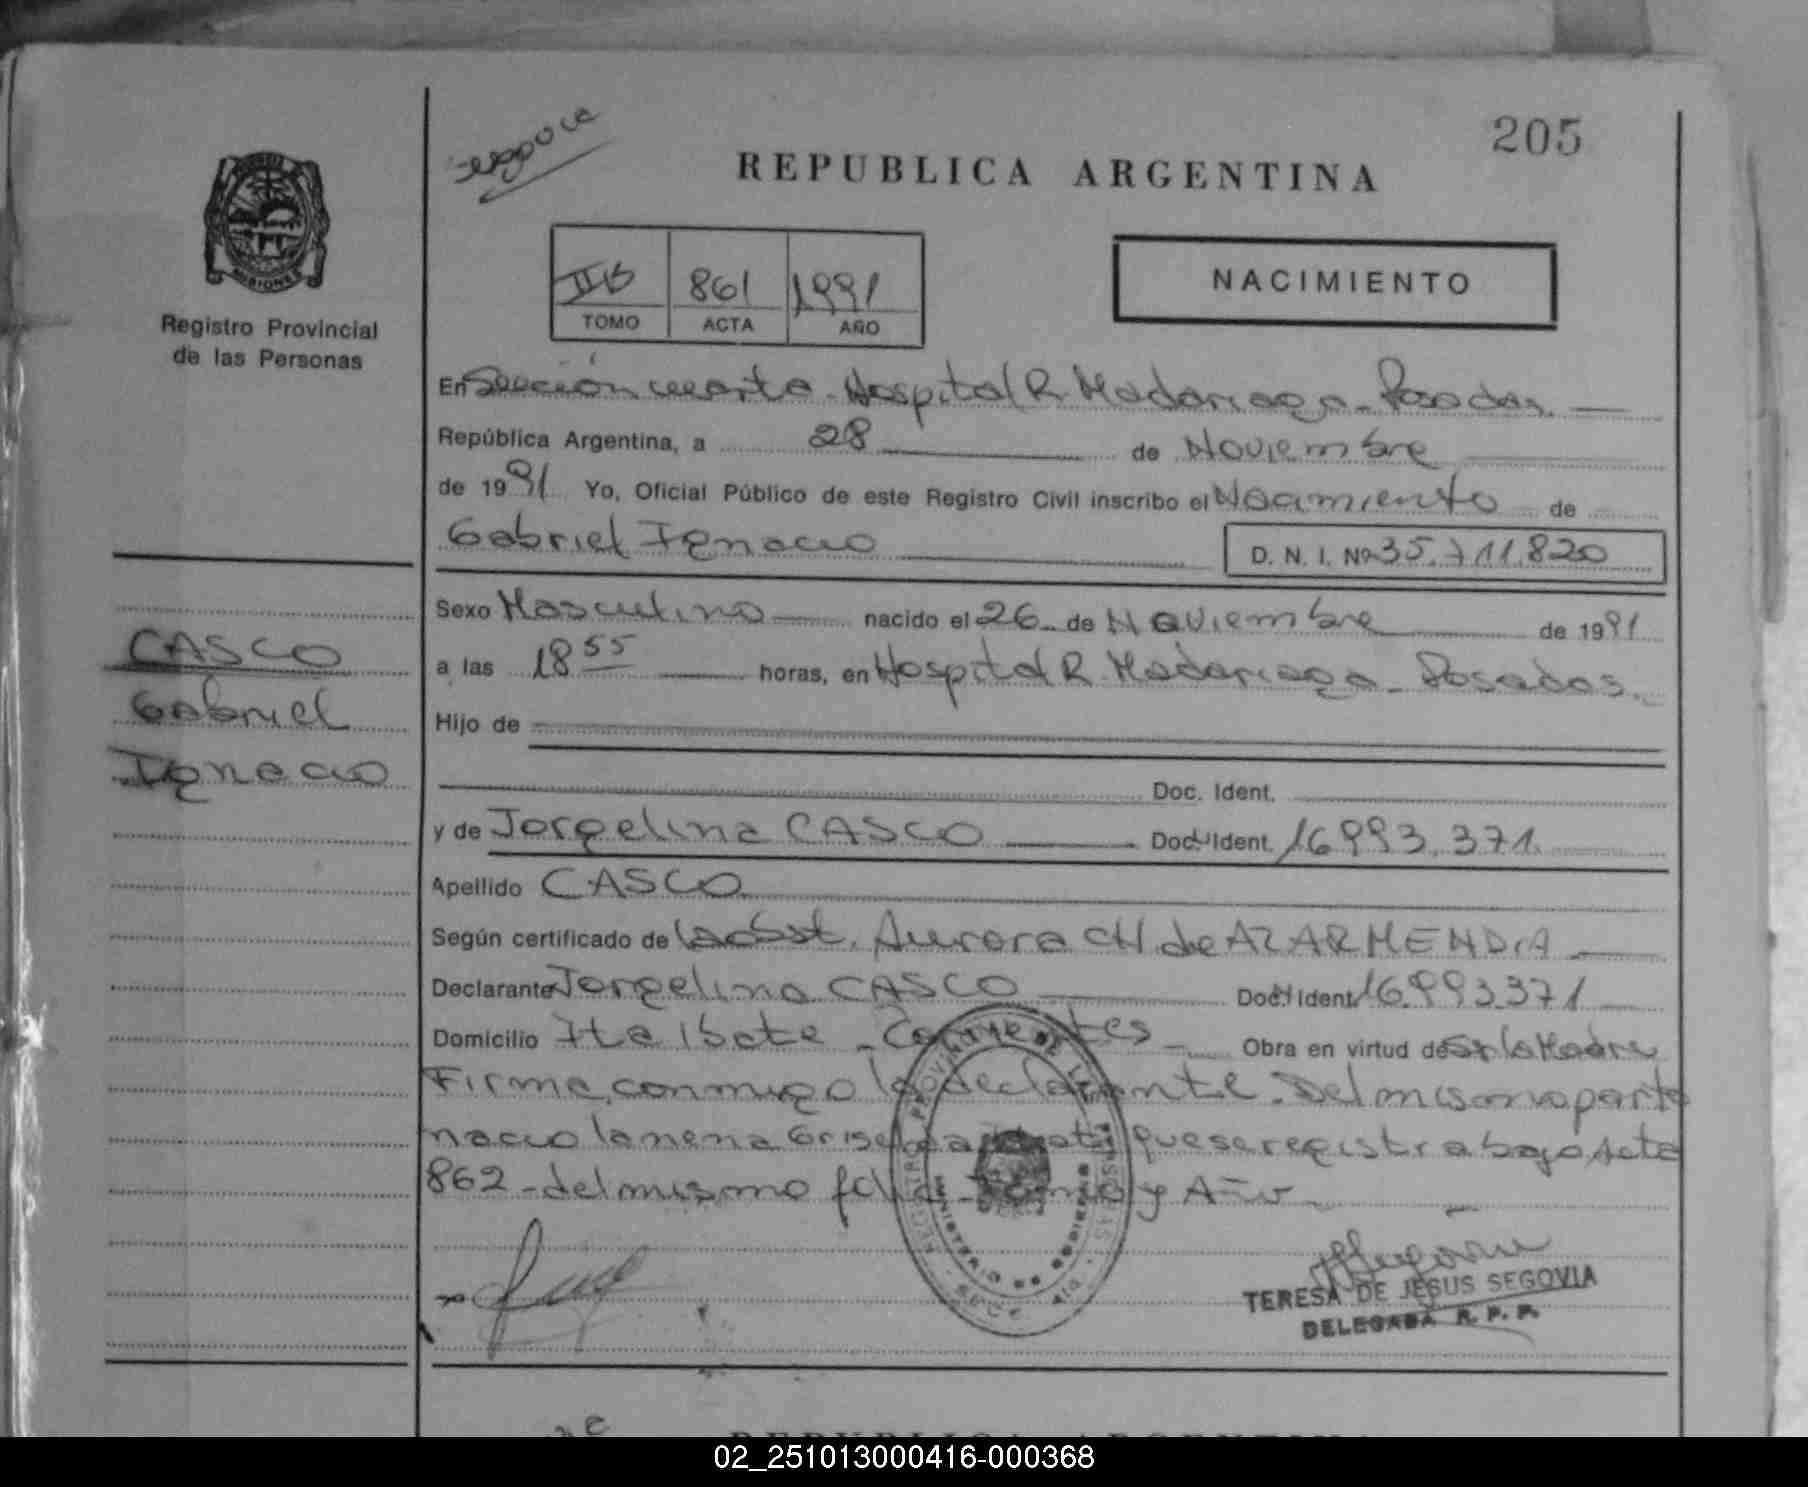 205
REPUBLICA ARGENTINA
MISIONES
Registro Provincial
de las Personas
861 1991
TOMO ACTA AÑO
NACIMIENTO
En Sección cuarta - Hospital R. Madariaga - Posadas.
República Argentina, a 28 de Noviembre
de 1991 Yo, Oficial Público de este Registro Civil inscribo el Nacimiento de
Gabriel Ignacio D. N. I. Nº 35.711.820
Sexo Masculino nacido el 26 de Noviembre de 1991
a las 18 55 horas, en Hospital R. Madariaga - Posadas.
Hijo de
Doc. Ident.
y de Jorgelina CASCO Doc. Ident. 16.993.371.
Apellido CASCO
Según certificado de la obst. Aurora CH de AZARMENDIA
Declarante Jorgelina CASCO Doc. Ident. 16.993.371
Domicilio Ita Ibate - Corrientes - Obra en virtud de Ser la Madre
Firma conmigo la declarante. Del mismo parto
nacio la nena que se registra bajo Acta
862 - del mismo folio - Tomo y Año -
CASCO
Gabriel
Ignacio
TERESA DE JESUS SEGOVIA
DELEGADA R. P. P.
REPUBLICA ARGENTINA
02_251013000416-000368